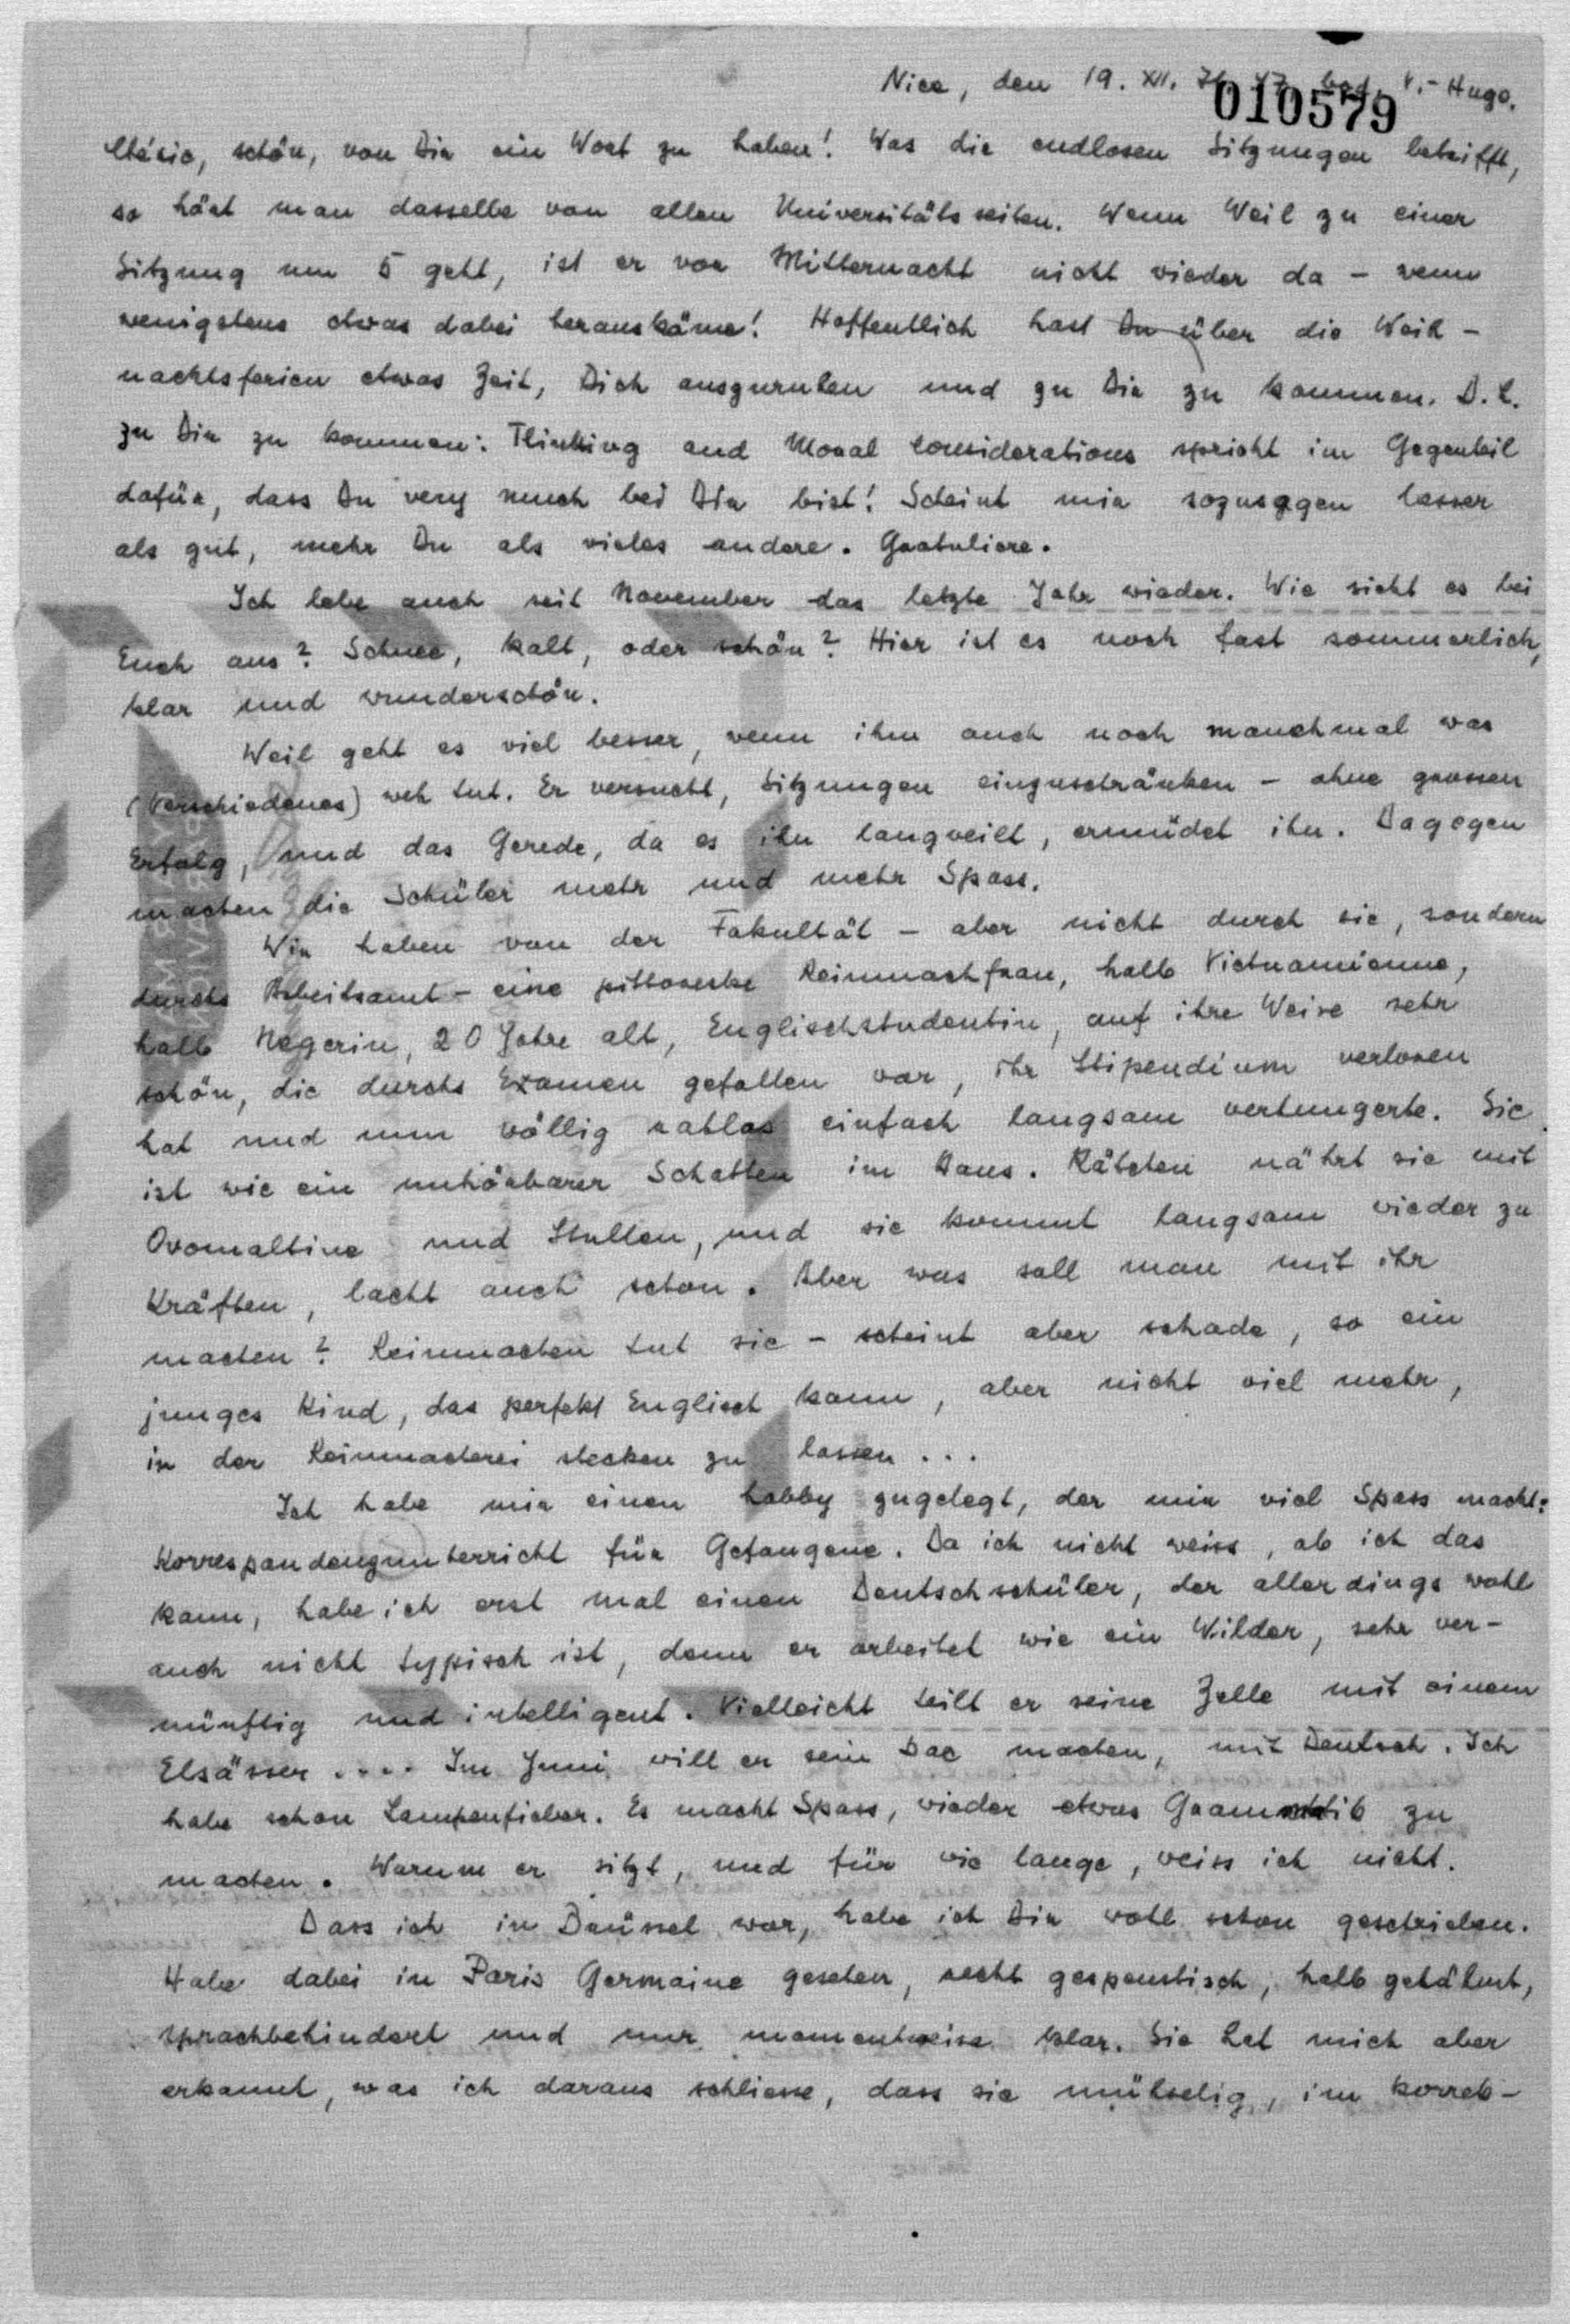 Nice, den 19. XII. 71, 47, bod. V.-Hugo.
010579
Chérie, schön, von Dir ein Wort zu haben! Was die endlosen Sitzungen betrifft,
so hört man dasselbe von allen Universitätsseiten. Wenn Weil zu einer
Sitzung um 5 geht, ist er vor Mitternacht nicht wieder da – wenn
wenigstens etwas dabei herauskäme! Hoffentlich hast Du über die Weih-
nachtsferien etwas Zeit, Dich auszuruhen und zu Dir zu kommen. D.h.
zu Dir zu kommen: Thinking and Moral Considerations spricht im Gegenteil
dafür, dass Du very much bei Dir bist! Scheint mir sozusagen besser
als gut, mehr Du als vieles andere. Gratuliere.
Ich lebe auch seit November das letzte Jahr wieder. Wie sieht es bei
Euch aus? Schnee, kalt, oder schön? Hier ist es noch fast sommerlich,
klar und wunderschön.
Weil geht es viel besser, wenn ihm auch noch manchmal was
(Verschiedenes) weh tut. Er versucht, Sitzungen einzuschränken – ohne grossen
Erfolg, und das Gerede, da es ihn langweilt, ermüdet ihn. Dagegen
machen die Schüler mehr und mehr Spass.
Wir haben von der Fakultät – aber nicht durch sie, sondern
durchs Arbeitsamt – eine pittoreske Reinmachfrau, halb Vietnamienne,
halb Negerin, 20 Jahre alt, Englischstudentin, auf ihre Weise sehr
schön, die durchs Examen gefallen war, ihr Stipendium verloren
hat und nun völlig ratlos einfach langsam verhungerte. Sie
ist wie ein unhörbarer Schatten im Haus. Kätchen nährt sie mit
Ovomaltine und Stullen, und sie kommt langsam wieder zu
Kräften, lacht auch schon. Aber was soll man mit ihr
machen? Reinmachen tut sie – scheint aber schade, so ein
junges Kind, das perfekt Englisch kann, aber nicht viel mehr,
in der Reinmacherei stecken zu lassen...
Ich habe mir einen hobby zugelegt, der mir viel Spass macht:
Korrespondenzunterricht für Gefangene. Da ich nicht weiss, ob ich das
kann, habe ich erst mal einen Deutschschüler, der allerdings wohl
auch nicht typisch ist, denn er arbeitet wie ein Wilder, sehr ver-
nünftig und intelligent. Vielleicht teilt er seine Zelle mit einem
Elsässer .... Im Juni will er sein bac machen, mit Deutsch. Ich
habe schon Lampenfieber. Es macht Spass, wieder etwas Grammatik zu
machen. Warum er sitzt, und für wie lange, weiss ich nicht.
Dass ich in Brüssel war, habe ich Dir wohl schon geschrieben.
Habe dabei in Paris Germaine gesehen, recht gespenstisch, halb gelähmt,
sprachbehindert und nur momentweise klar. Sie hat mich aber
erkannt, was ich daraus schliesse, dass sie mühselig, im korrek-